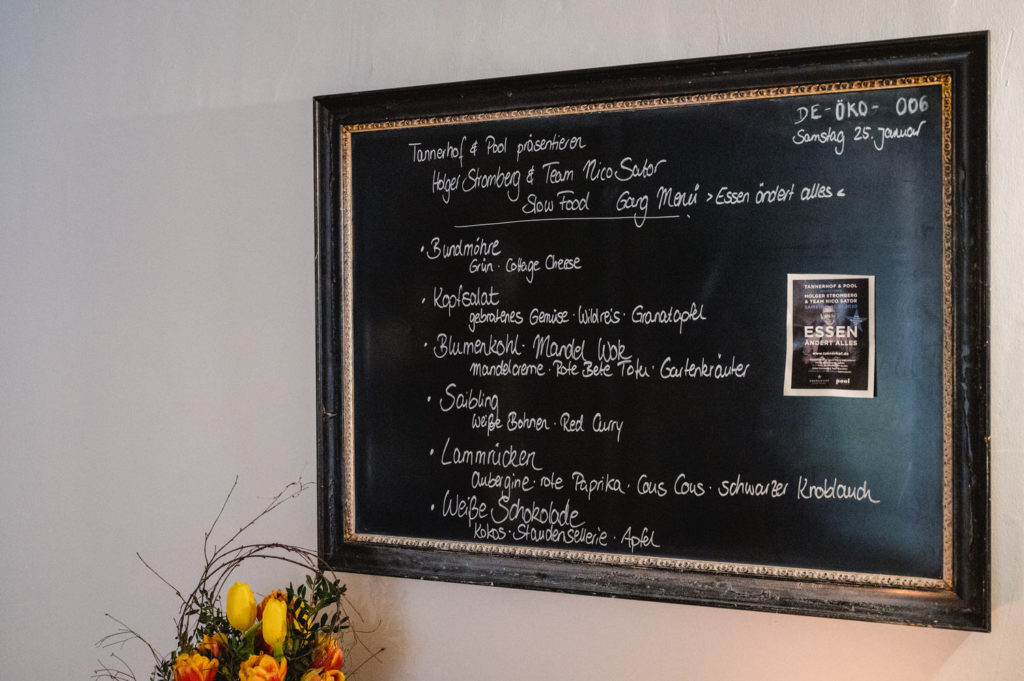 DE-ÖKO- 006
Samstag 25. Januar
Tannerhof & Pool präsentieren
Holger Stromberg & Team Nico Sator
Slow Food Gang Menü >Essen ändert alles<
• Bundmöhre
Grün · Cottage Cheese
• Kopfsalat
gebratenes Gemüse · Wildreis · Granatapfel
• Blumenkohl · Mandel Wok
Mandelcreme · Rote Bete Tofu · Gartenkräuter
• Saibling
Weiße Bohnen · Red Curry
• Lammrücken
Aubergine · rote Paprika · Cous Cous · schwarzer Knoblauch
• Weiße Schokolade
Kokos · Staudensellerie · Apfel
TANNERHOF & POOL
HOLGER STROMBERG
& TEAM NICO SATOR
ESSEN
ÄNDERT ALLES
www.tannerhof.de
pool